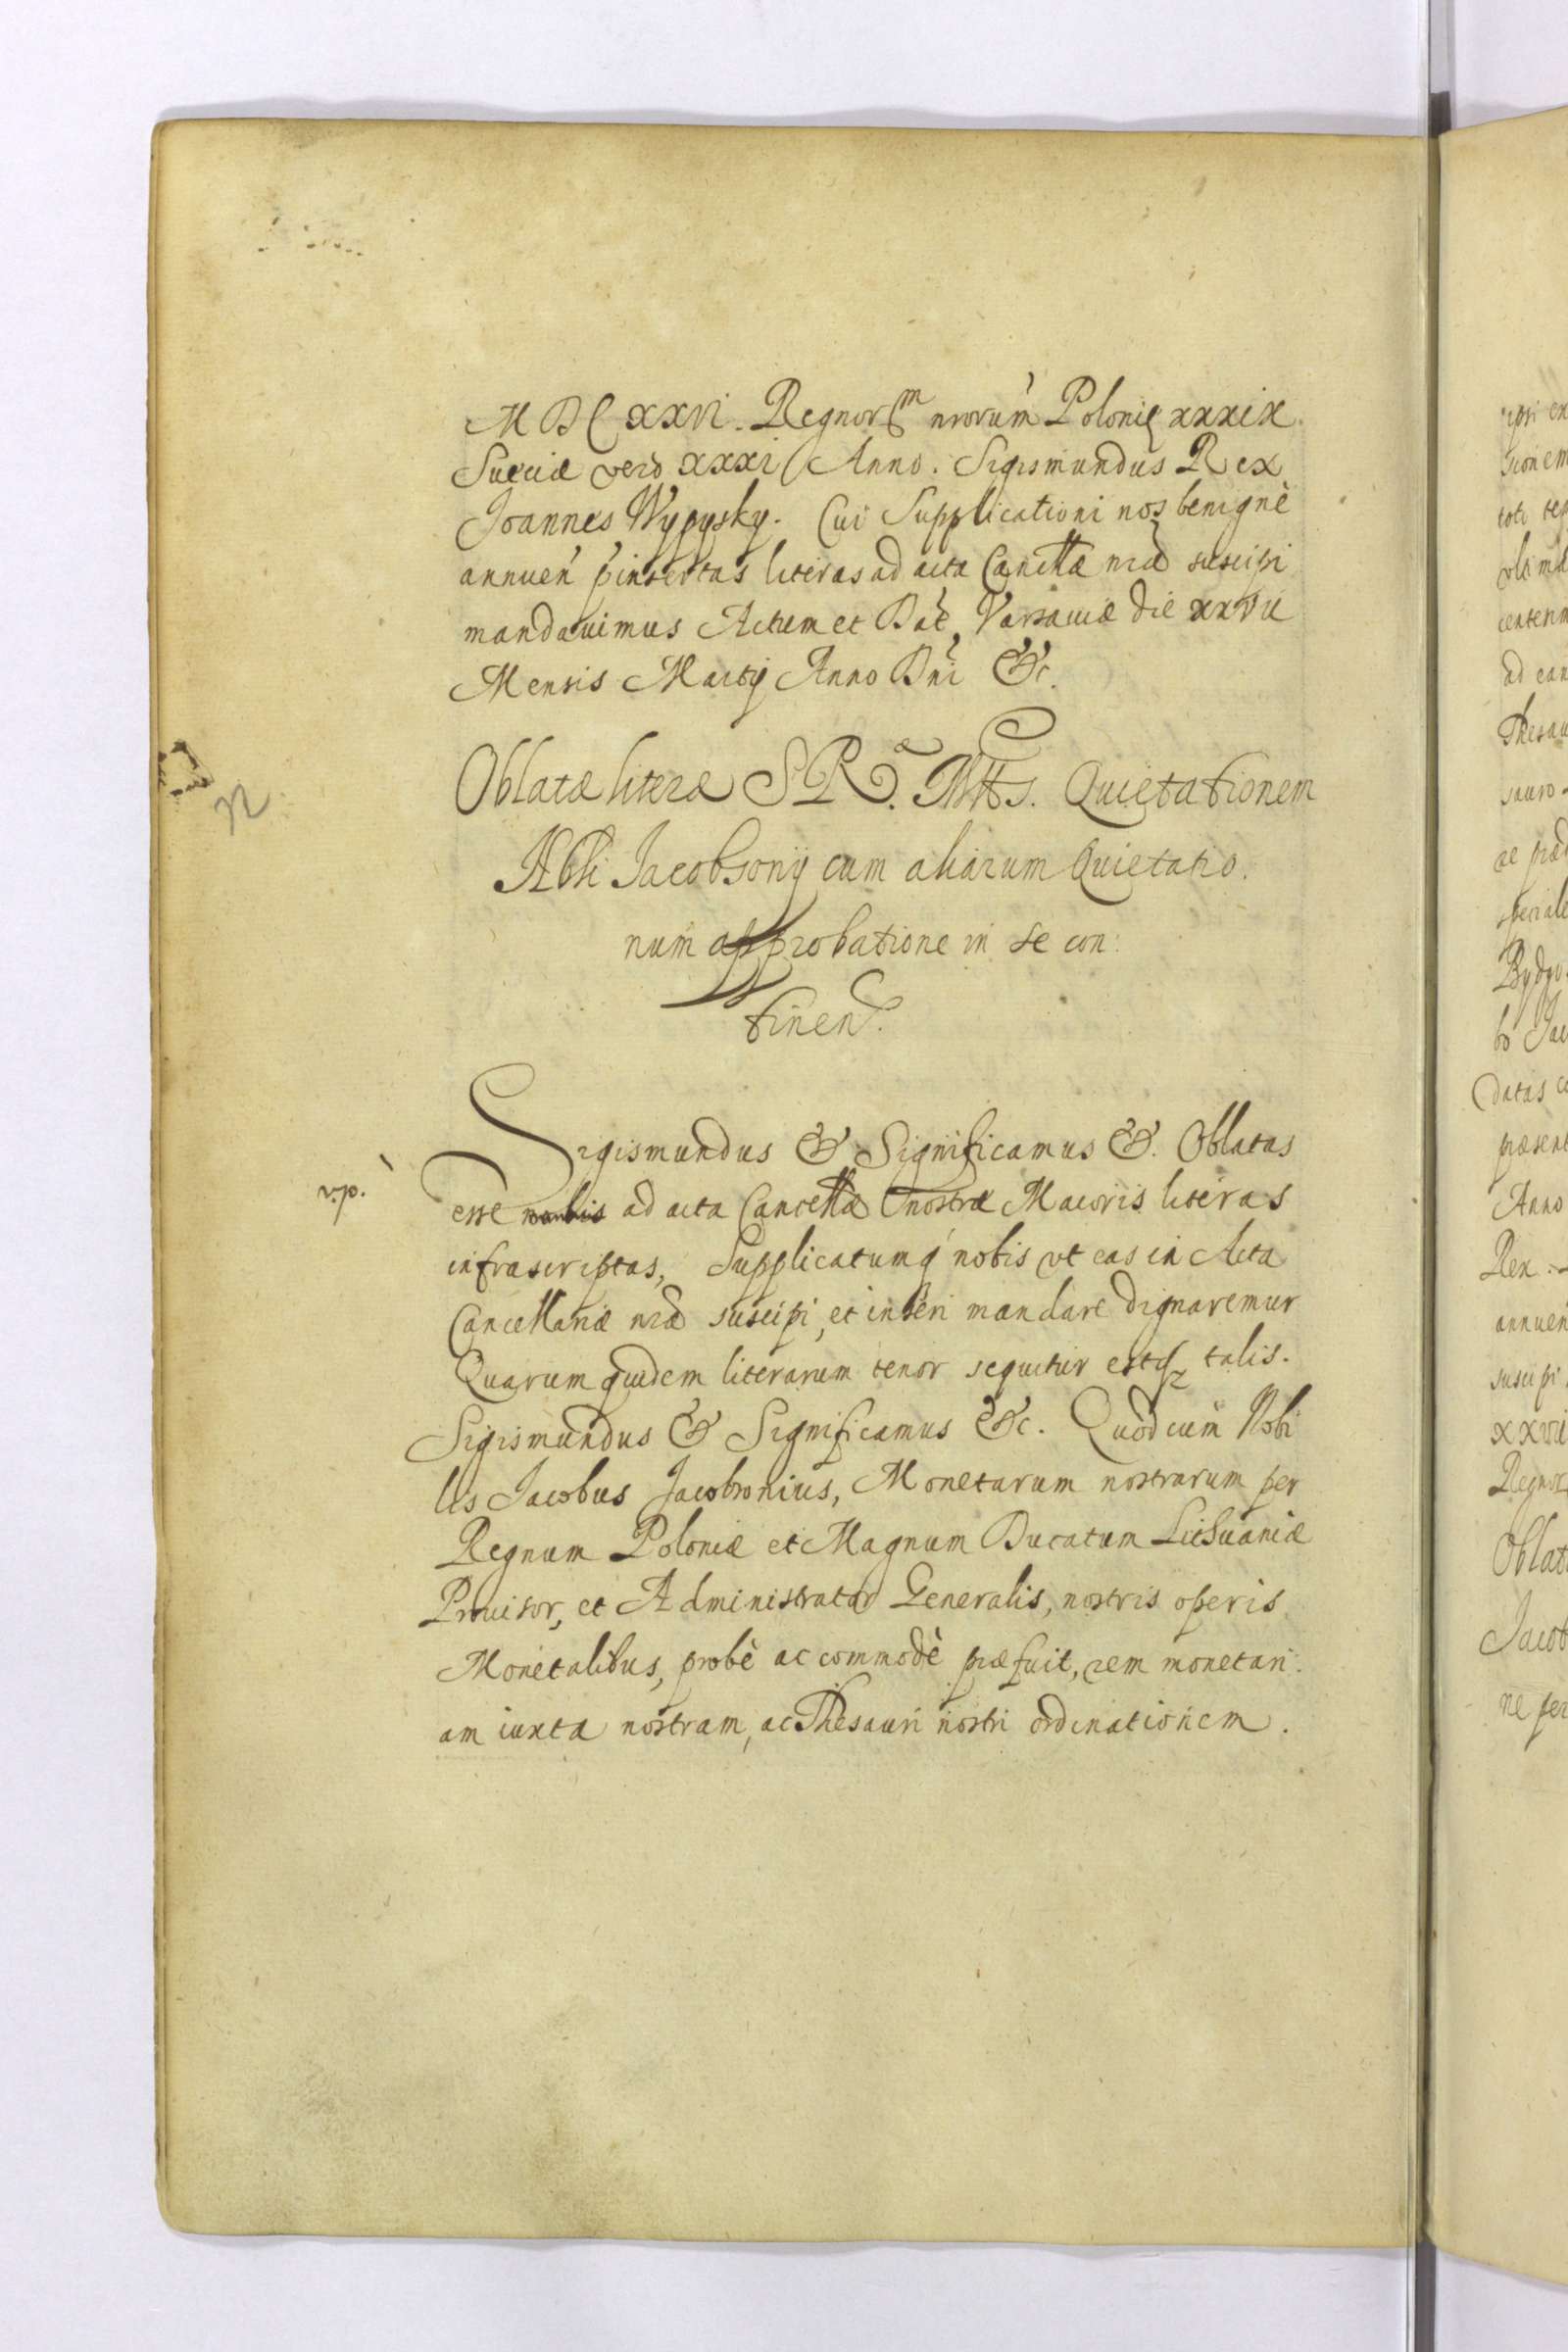 MDCXXVI. Regnorm nrorum Polonię xxxix.
Sueciæ vero xxxi Anno. Sigismundus Rex
Joannes Wypysky. Cui Supplicationi nos benignè
annuen pinsertas literas ad acta Cancllæ nræ suscipi
mandauimus Actum et Dat Varsauiæ die xxvii
Mensis Martij Anno Dni &c.
Oblatæ literæ SRæ. Mttis. Quietationem
Nbli Jacobsonij cum aliarum Quietatio.
num approbatione in se con:
tinen.
Sigismundus & Significamus &. Oblatas
v.p.
esse ad acta Cancellæ nostræ Maioris literas
infrascriptas, Supplicatumq nobis vt eas in Acta
Cancellariæ nræ suscipi, et inseri mandare dignaremur
Quarum quidem literarum tenor sequitur estq talis.
Sigismundus & Significamus &c. Quod cum Nobi
lis Jacobus Jacobsonius, Monetarum nostrarum per
Regnum Poloniæ et Magnum Ducatum Lithuaniæ
Prouisor, et Administrator Generalis, nostris operis
Monetalibus, probè ac commodè præfuit, rem monetari.
am iuxta nostram, ac Thesauri nostri ordinationem.